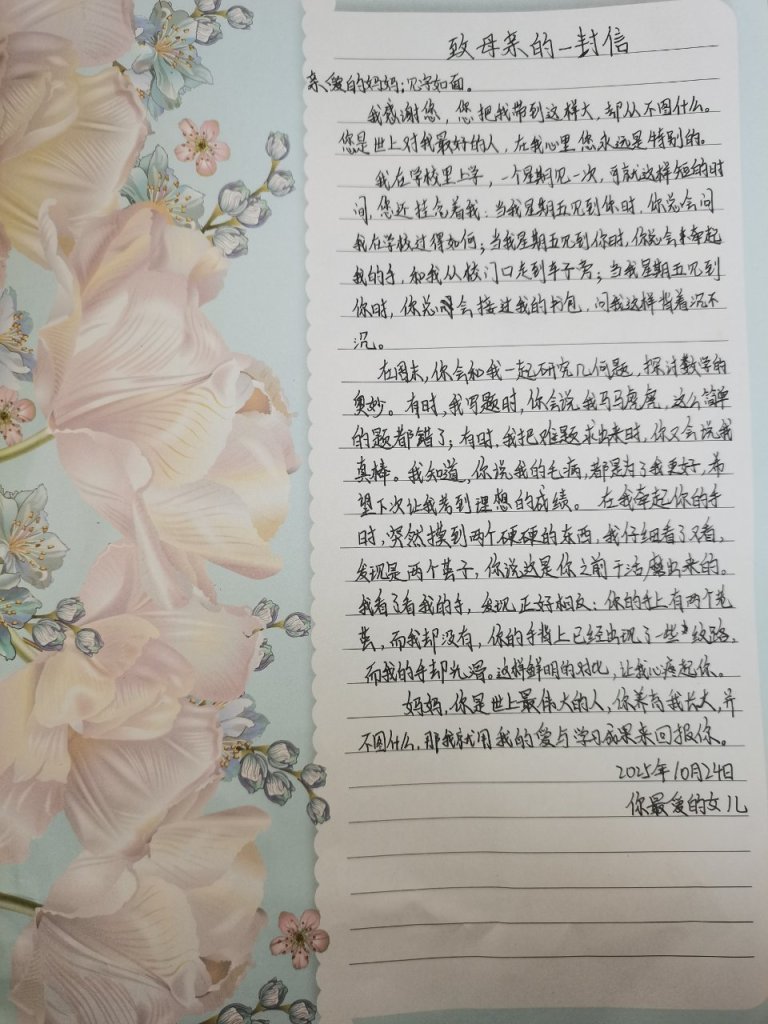 致母亲的一封信
亲爱的妈妈：见字如面。
我感谢您，您把我带到这样大，却从不图什么。
您是世上对我最好的人，在我心里您永远是特别的。
我在学校里上学，一个星期见一次，可就这样短的时
间，您还挂念着我：当我星期五见到你时，你总会问
我在学校过得如何；当我星期五见到你时，你总会来牵起
我的手，和我从校门口走到车子旁；当我星期五见到
你时，你总会接过我的书包，问我这样背着沉不
沉。
在周末，你会和我一起研究几何题，探讨数学的
奥妙。有时，我写题时，你会说我马马虎虎，这么简单
的题都错了；有时，我把难题求出来时，你又会说我
真棒。我知道，你说我的毛病，都是为了我更好，希
望下次让我考到理想的成绩。在我牵起你的手
时，突然摸到两个硬硬的东西，我仔细看了又看，
发现是两个茧子，你说这是你之前干活磨出来的。
我看了看我的手，发现正好相反：你的手上有两个老
茧，而我却没有，你的手背上已经出现了一些纹路，
而我的手却光滑。这样鲜明的对比，让我心疼起你。
妈妈，你是世上最伟大的人，你养育我长大，并
不图什么，那我就用我的爱与学习成果来回报你。
2025年10月24日
你最爱的女儿